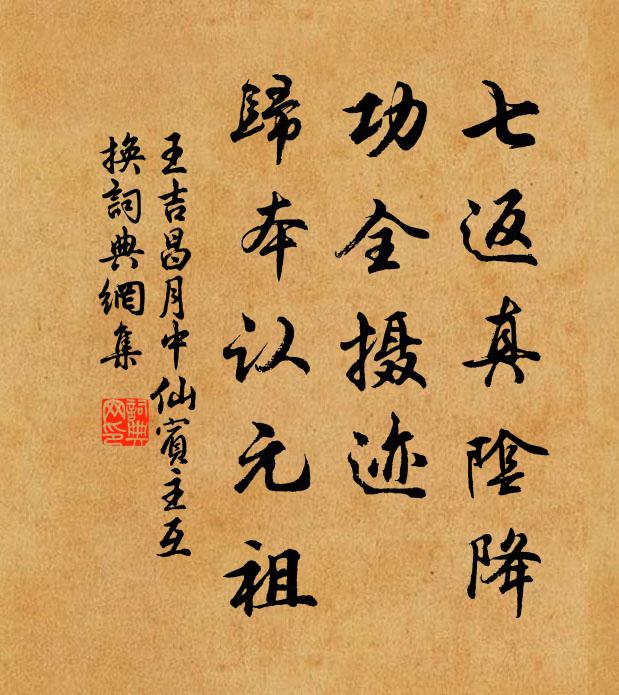 七返真陰降
功全摄迹
歸本认元祖
王吉昌月中仙賓主互
换詞典網集
詞典網印